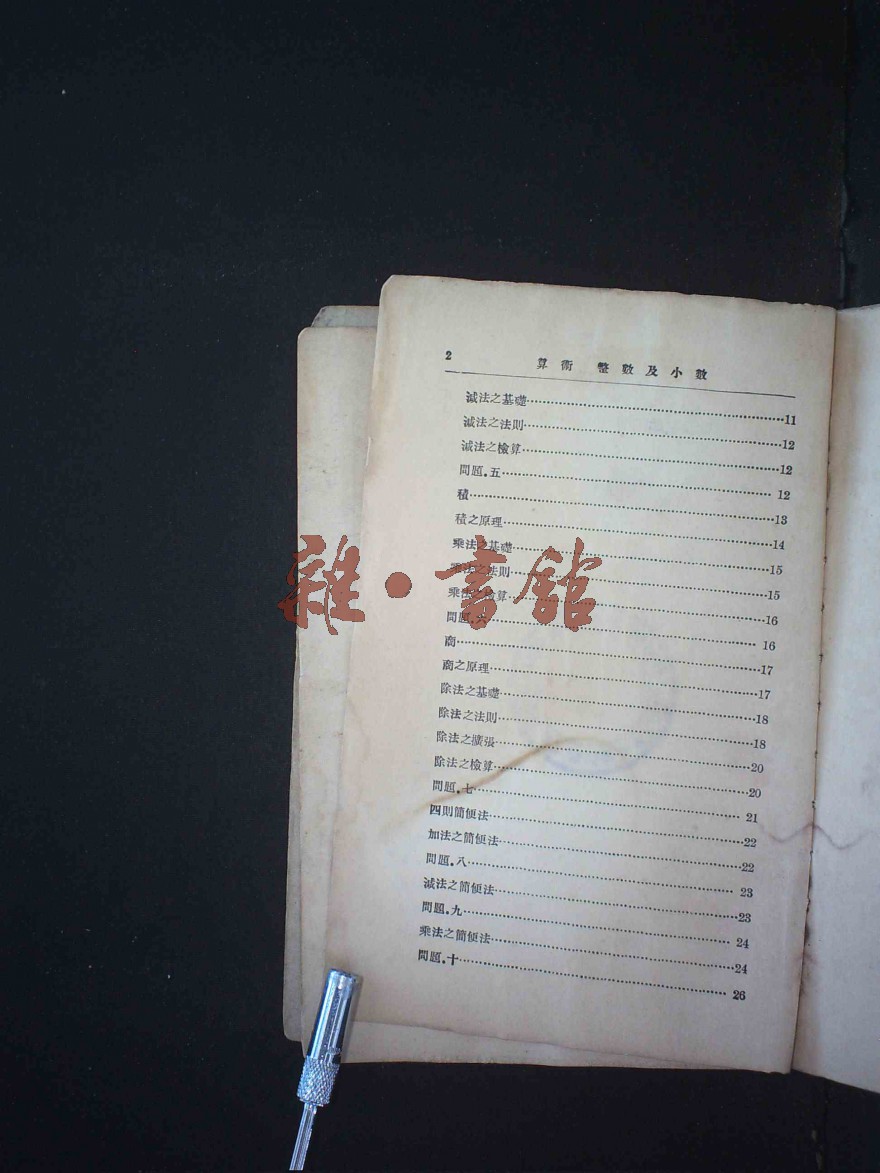 2 算術 整數及小數
減法之基礎 11
減法之法則 12
減法之檢算 12
問題.五 12
積 13
積之原理 14
乘法之基礎 15
乘法之法則 15
乘法之檢算 16
問題.六 16
商 17
商之原理 17
除法之基礎 18
除法之法則 18
除法之擴張 20
除法之檢算 20
問題.七 21
四則簡便法 22
加法之簡便法 22
問題.八 23
減法之簡便法 23
問題.九 24
乘法之簡便法 24
問題.十 26
雜·書館